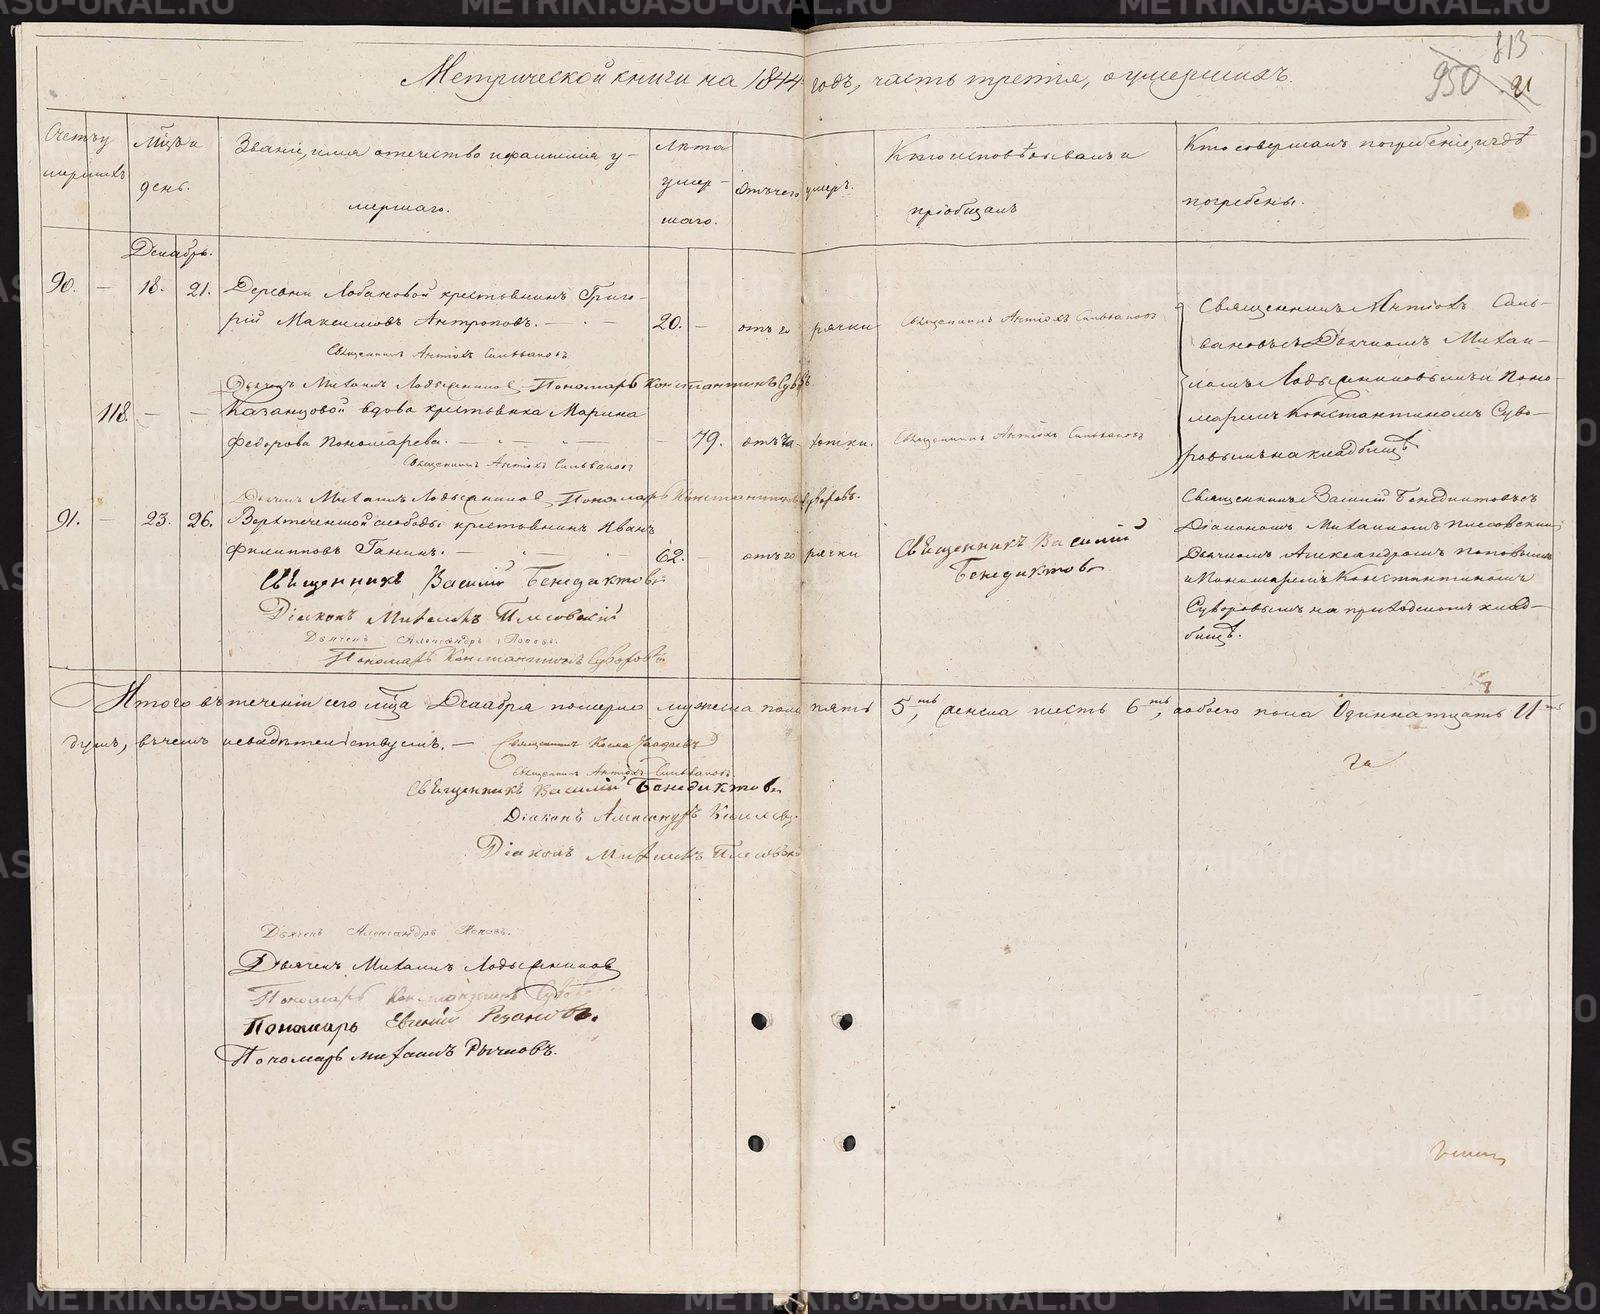 Метрической книги на 1844 годъ, часть третія, о умершихъ.
813
950
Счетъ у
мершихъ
Мцъ и
день.
Званіе, имя отечество и фамилія у-
мершаго.
Лѣта
умер-
шаго.
Отъ чего умеръ.
Кто исповѣдывалъ и
пріобщалъ
Кто совершалъ погребеніе, и гдѣ
погребены.
Декабрь.
90. — 18. 21. Деревни Лобановой крестьянинъ Григо-
рій Максимовъ Антроповъ. — 20. — отъ горячки
Священникъ Антіохъ Сильвановъ
Священникъ Антіохъ Сильвановъ
Дьячекъ Михаилъ Ладыжниковъ Пономарь Константинъ Суворовъ
Священникъ Антіохъ Силь-
вановъ съ Дьячкомъ Михаи-
ломъ Ладыжниковымъ и Поно-
маремъ Константиномъ Суво-
ровымъ на кладбищѣ
118. — — Казанцовой вдова крестьянка Марина
Федорова Пономарева. — 79. отъ чахотки.
Священникъ Антіохъ Сильвановъ
Священникъ Антіохъ Сильвановъ
Дьячекъ Михаилъ Ладыжниковъ Пономарь Константинъ Суворовъ.
91. — 23. 26. Верхтеченской слободы крестьянинъ Иванъ
Филипповъ Ганинъ. — 62. — отъ горячки
Священникъ Василій Бенедиктовъ
Діаконъ Михаилъ Плесовскій
Дьячекъ Александръ Поповъ.
Пономарь Константинъ Суворовъ
Священникъ Василій
Бенедиктовъ
Священникъ Василій Бенедиктовъ съ
Діакономъ Михаиломъ Плесовскимъ
Дьячкомъ Александромъ Поповымъ
и Пономаремъ Константиномъ
Суворовымъ на приходскомъ клад-
бищѣ.
Итого въ теченіи сего мца Декабря померло мужеска пола пять 5ть, женска шесть 6ть, а обоего пола Одиннатцать 11ть
душъ, въ чемъ и свидѣтельствуемъ. —
Священникъ Антіохъ Сильвановъ
Священникъ Василій Бенедиктовъ
Діаконъ Михаилъ Плесовскій
Дьячекъ Александръ Поповъ.
Дьячекъ Михаилъ Ладыжниковъ
Пономарь Константинъ Суворовъ
Пономарь Евгеній Резановъ.
Пономарь Михаилъ Рычковъ.
METRIKI.GASO-URAL.RU